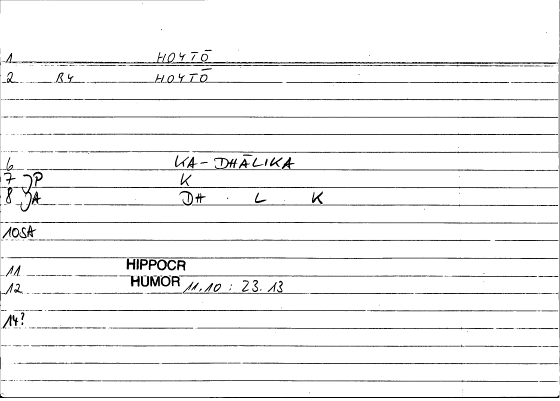 1 HOYTŌ
2 RY HOYTŌ
6 KA-DHĀLIKA
7 P K
8 A DH . L . K
10SA
11 HIPPOCR
12 HUMOR 11.10 : 23.13
14?